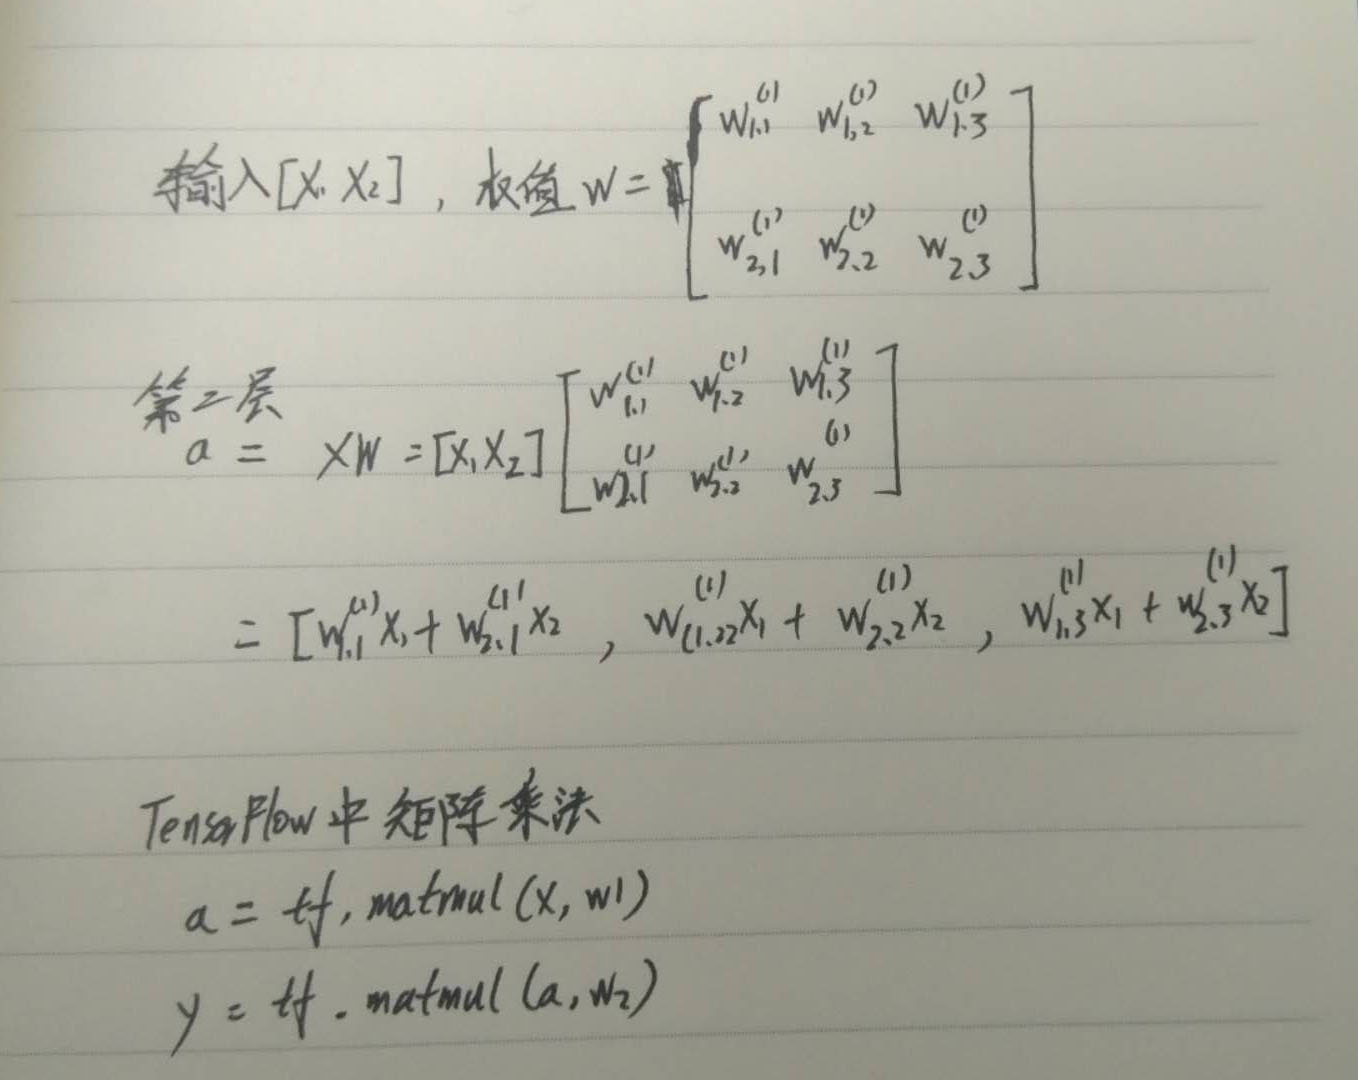 输入[X₁ X₂], 权值 W = [W₁.₁⁽¹⁾ W₁,₂⁽¹⁾ W₁.₃⁽¹⁾
W₂,₁⁽¹⁾ W₂.₂⁽¹⁾ W₂.₃⁽¹⁾]
第二层
a = XW = [X₁X₂] [W₁.₁⁽¹⁾ W₁.₂⁽¹⁾ W₁.₃⁽¹⁾
W₂.₁⁽¹⁾ W₂.₂⁽¹⁾ W₂.₃⁽¹⁾]
= [W₁.₁⁽¹⁾X₁ + W₂.₁⁽¹⁾X₂ , W₍₁.₂₎⁽¹⁾X₁ + W₂.₂⁽¹⁾X₂ , W₁.₃⁽¹⁾X₁ + W₂.₃⁽¹⁾X₂]
TensorFlow中矩阵乘法
a = tf. matmul (X, W1)
y = tf. matmul (a, W₂)